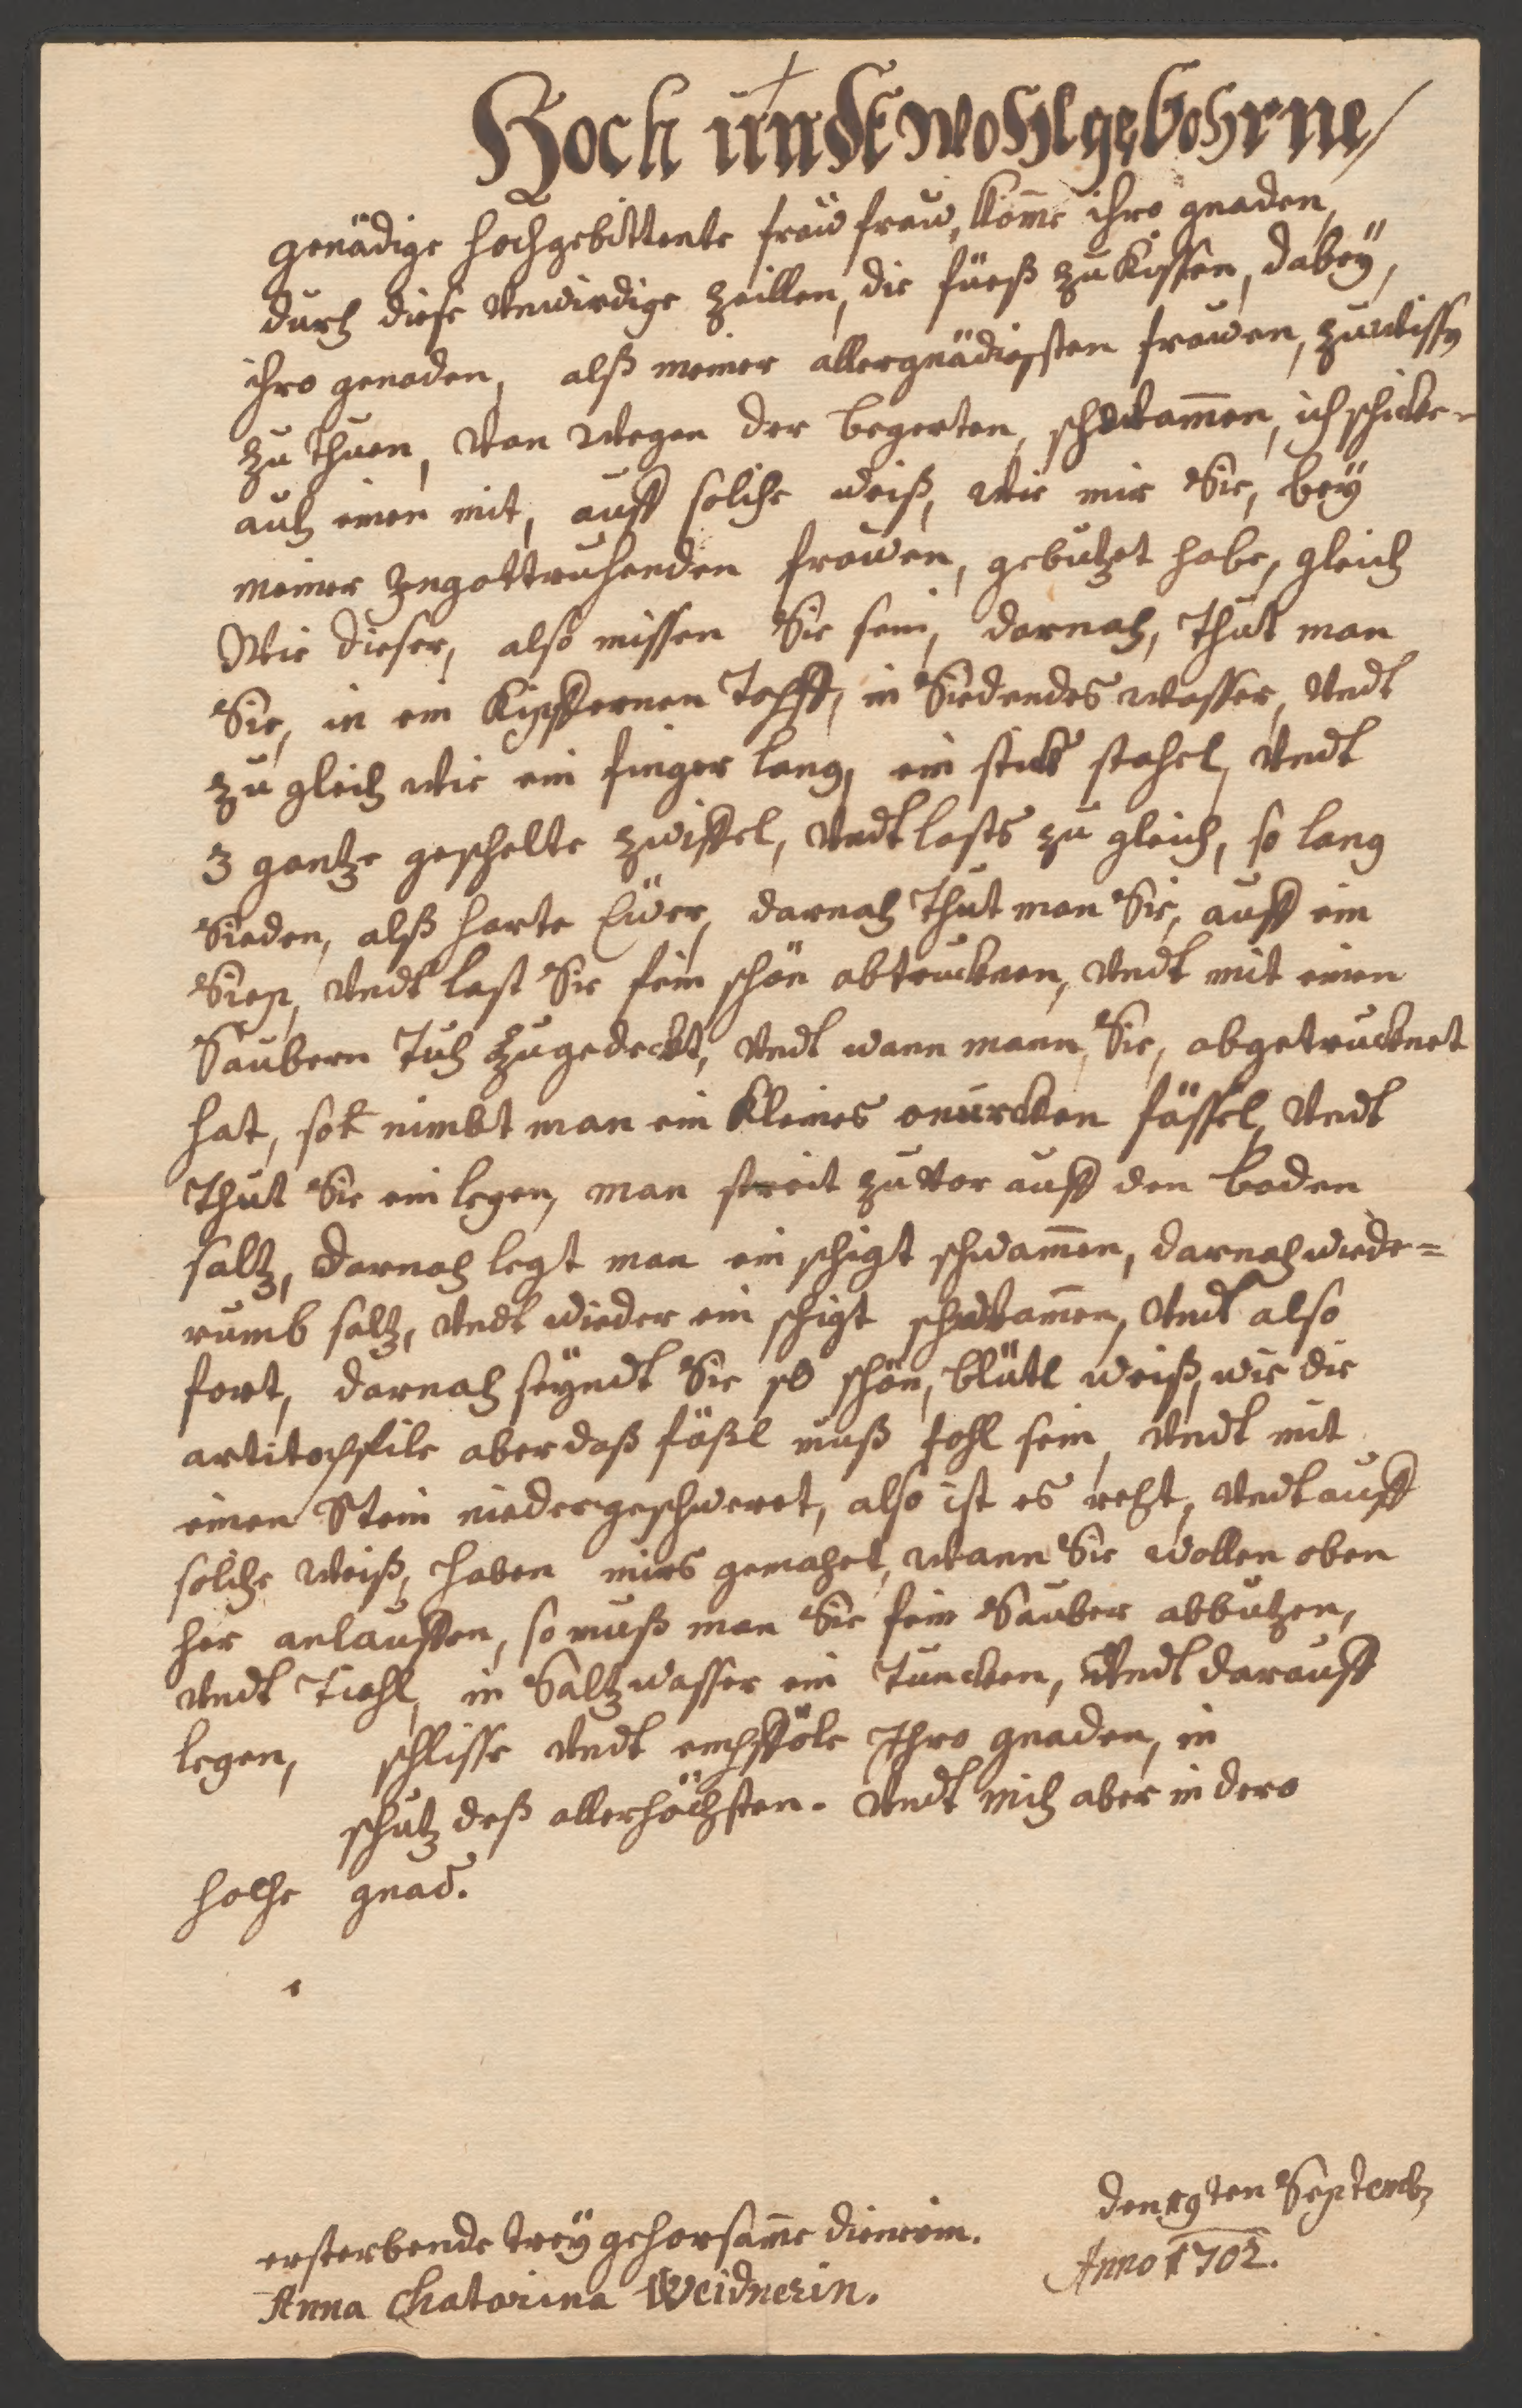 Hoch undt wohlgebohrne/
genädige hochgebittente frau frau, komme ihro gnaden,
durch diese vnwirdige Zeillen, die füeß zu Kissen, dabeÿ,
ihro genaden, alß meiner allergnädigsten frauen, zu wissen
zu thuen, von wegen der begerten, schwammen, ich schicke-
auch einen mit, auff solche weiß, wie mir Sie, beÿ
meiner Ingottruhenden frauen, gebutzet habe, gleich
Wie dieser, also missen Sie sein, darnach, thut man
Sie, in ein Kipffernen Topff, in Siedendes wasser, vndt
zu gleich wie ein finger lang, ein stick stahel, vndt
3 gantze geschelte zwiffel, vndt lasts zu gleich, so lang
Sieden, alß harte Eÿer, darnach thut man Sie, auff ein
Siep, vndt last Sie fein schön abtrucknen, vndt mit einen
Saubern Tuch Zugedeckt, vndt wann mann Sie, abgetrucknet
hat, so nimbt man ein Kleines fässel, vndt
thut Sie ein legen, man streit zu vor auff den boden
saltz, darnach legt man ein schigt schwammen, darnach wiede=
rumb saltz, vndt wieder ein schigt schwammen, vndt also
fort, darnach seÿndt Sie so schön, blütl weiß, wie die
aber daß fäßl muß fohl sein, vndt mit
einen Stein niedergeschweret, also ist es recht, vndt auff
solche weiß, haben mirs gemachet, wann Sie wollen oben
her anlauffen, so muß man Sie fein Sauber abbutzen,
vndt Tichl, in Saltzwasser ein Tuncken, vndt darauff
legen, schlisse vndt empfföle Ihro gnaden, in
schutz deß allerhöchsten. vndt mich aber in dero
hoche gnad.
den 19ten Septemb
ersterbende treÿ gehorsamme dienerin.
Anno 1702.
Anna Chatarina Weidnerin.